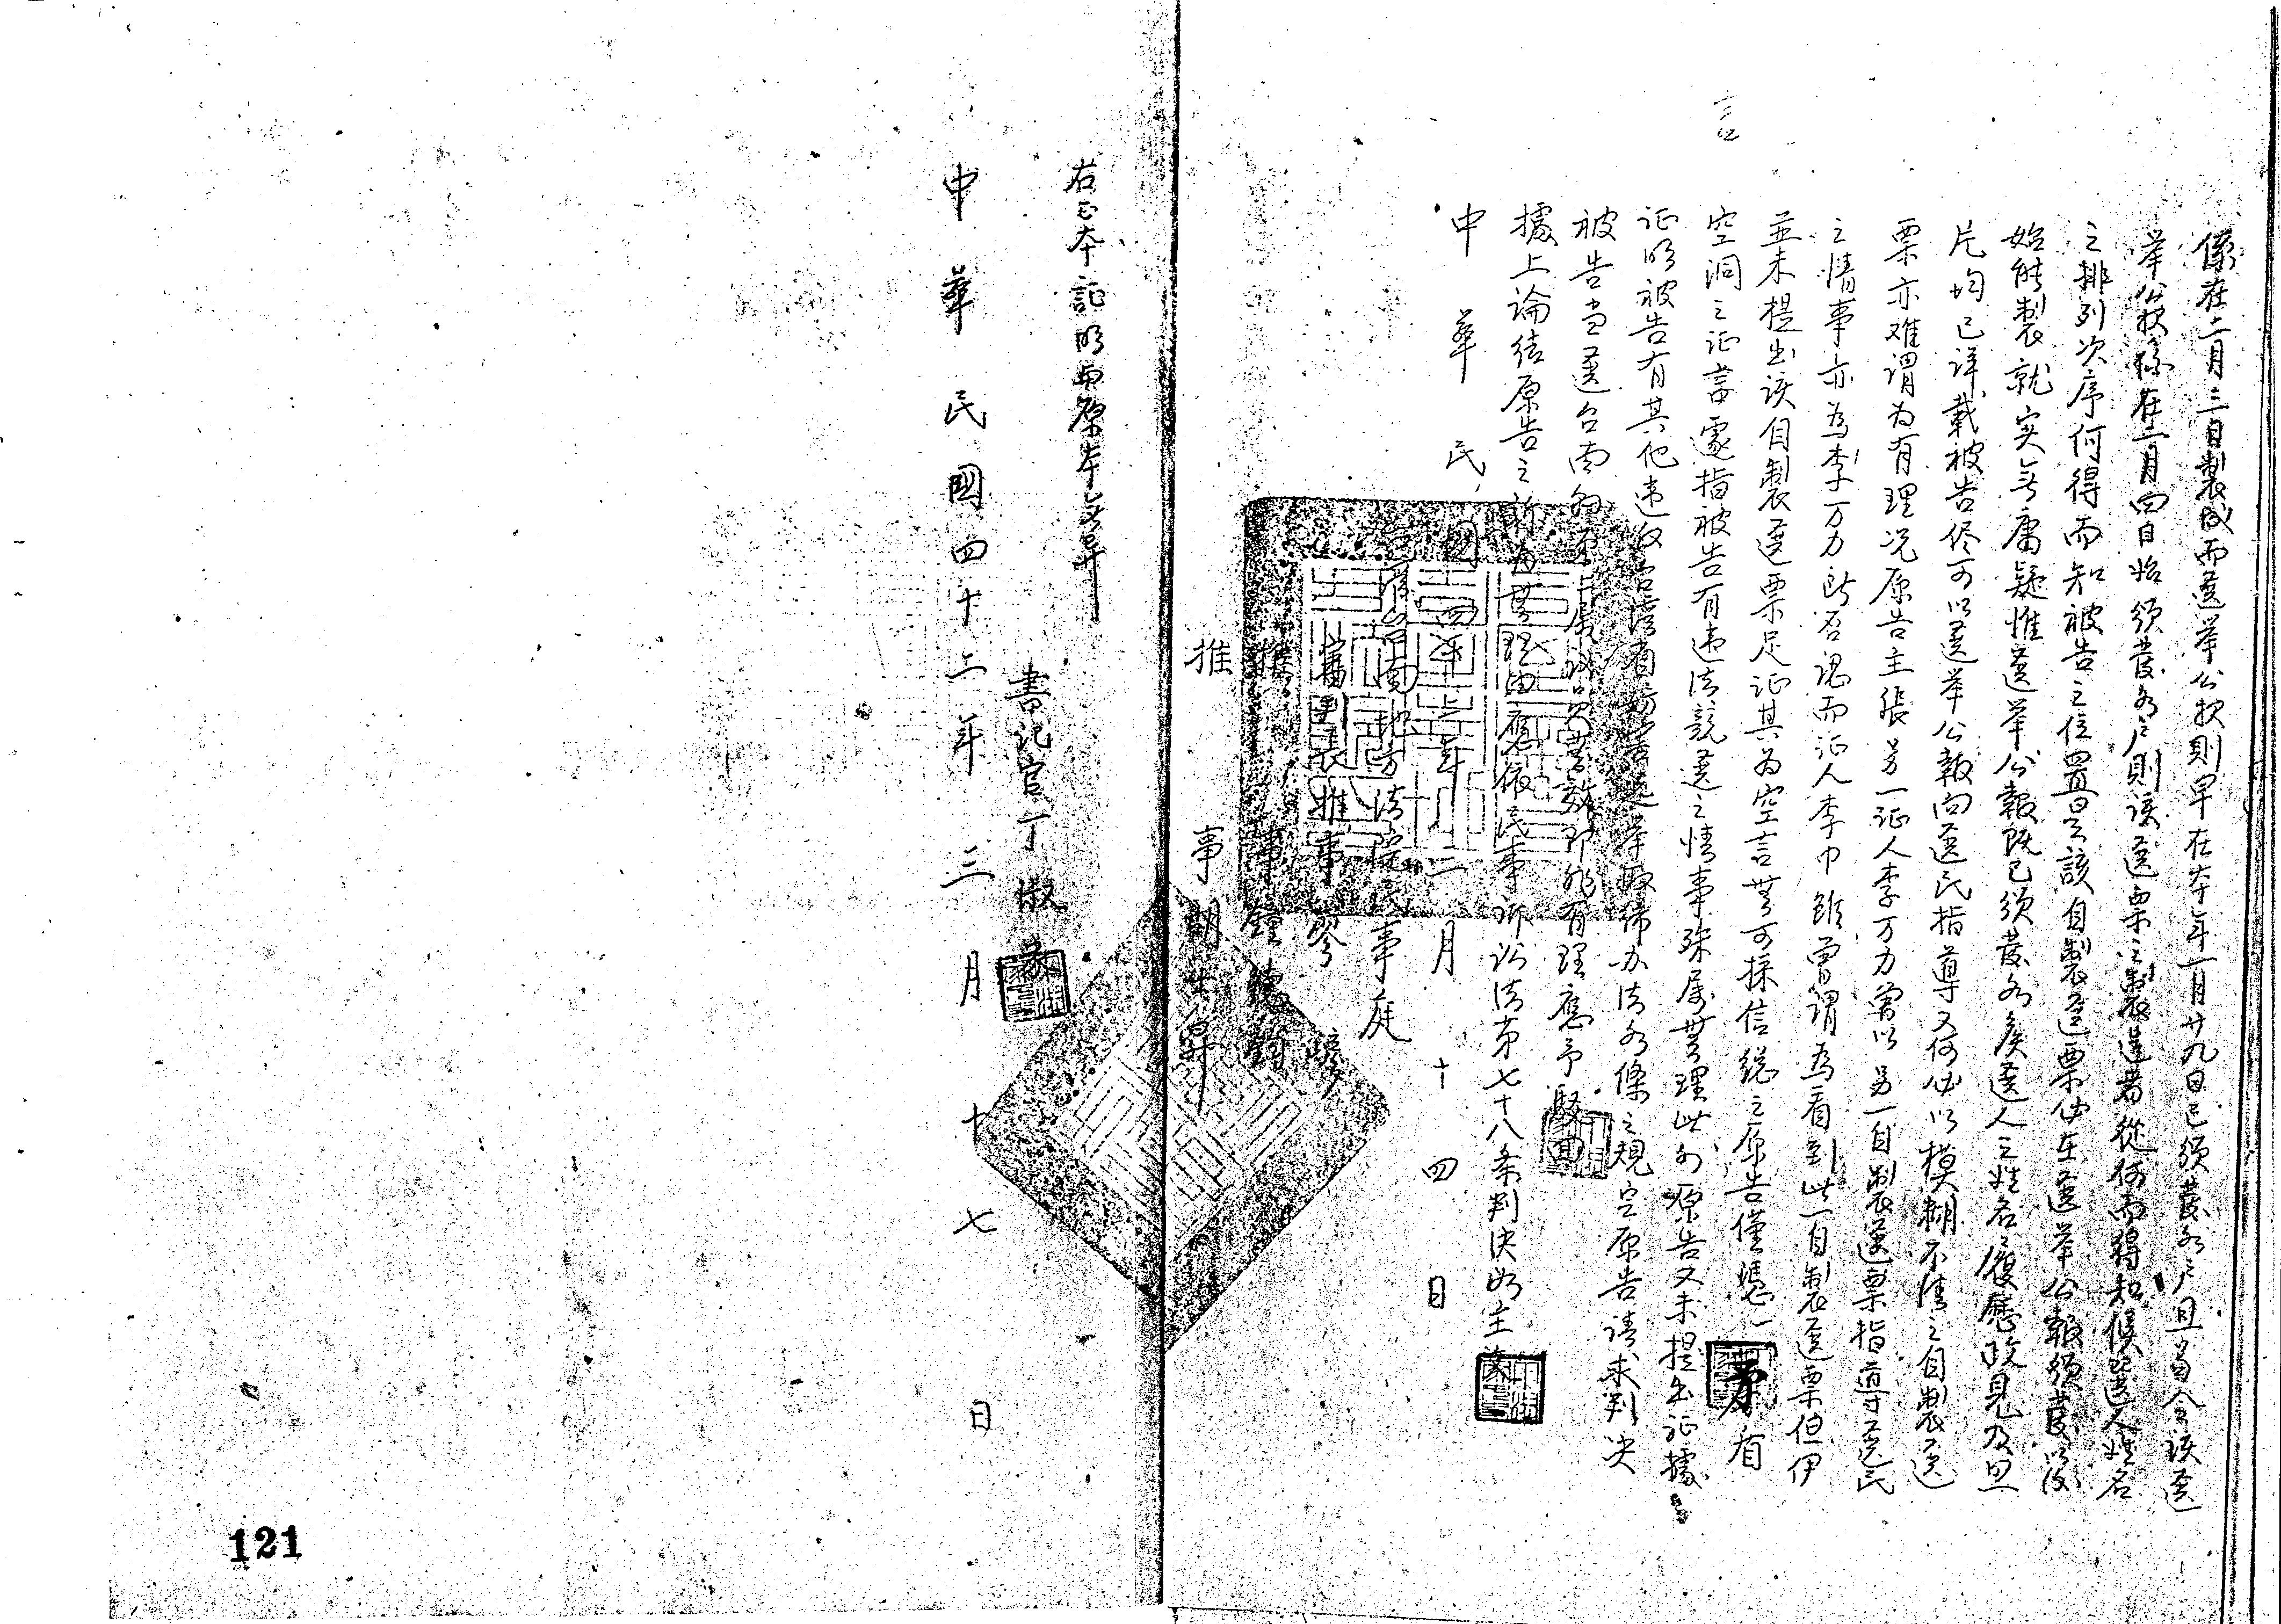 係在二月三日製成而選舉公報則早在本年一月廿九日已頒發各戶且易全該選
舉公報係在二月四日始頒發各戶則該選票之製造者從何而得知候選人姓名
之排列次序何得而知被告之位置是該自製選票必在選舉公報頒發以後
始能製就实無庸疑惟選舉公報既已頒發各候選人之姓名履歷政見及照
片均已詳載被告尽可以選舉公報向選民指導又何必以模糊不清之自製選
票亦难謂為有理况原告主張另一证人李万力曾以另一自製選票指導选民
之情事亦為李万力所否認而证人李巾雖曾謂為看到此一自製選票但伊
並未提出該自製選票足证其为空言無可採信總之原告僅憑一 有
空洞之证言遽指被告有违法競選之情事殊屬無理此外原告又未提出证據
证明被告有其他违反台灣省妨害選舉取締办法各條之規定原告请求判决
被告当選台南 有理應予駁回
據上論结原告之訴為無理由應依民事訴訟法第七十八条判决如主文
中華民國四十二年二月十四日
台灣台南地方法院民事庭
審判長推事廖
推事鐘德鈞
推事胡士昇
右正本証明與原本無異
書記官丁淑
中華民國四十二年三月十七日
121